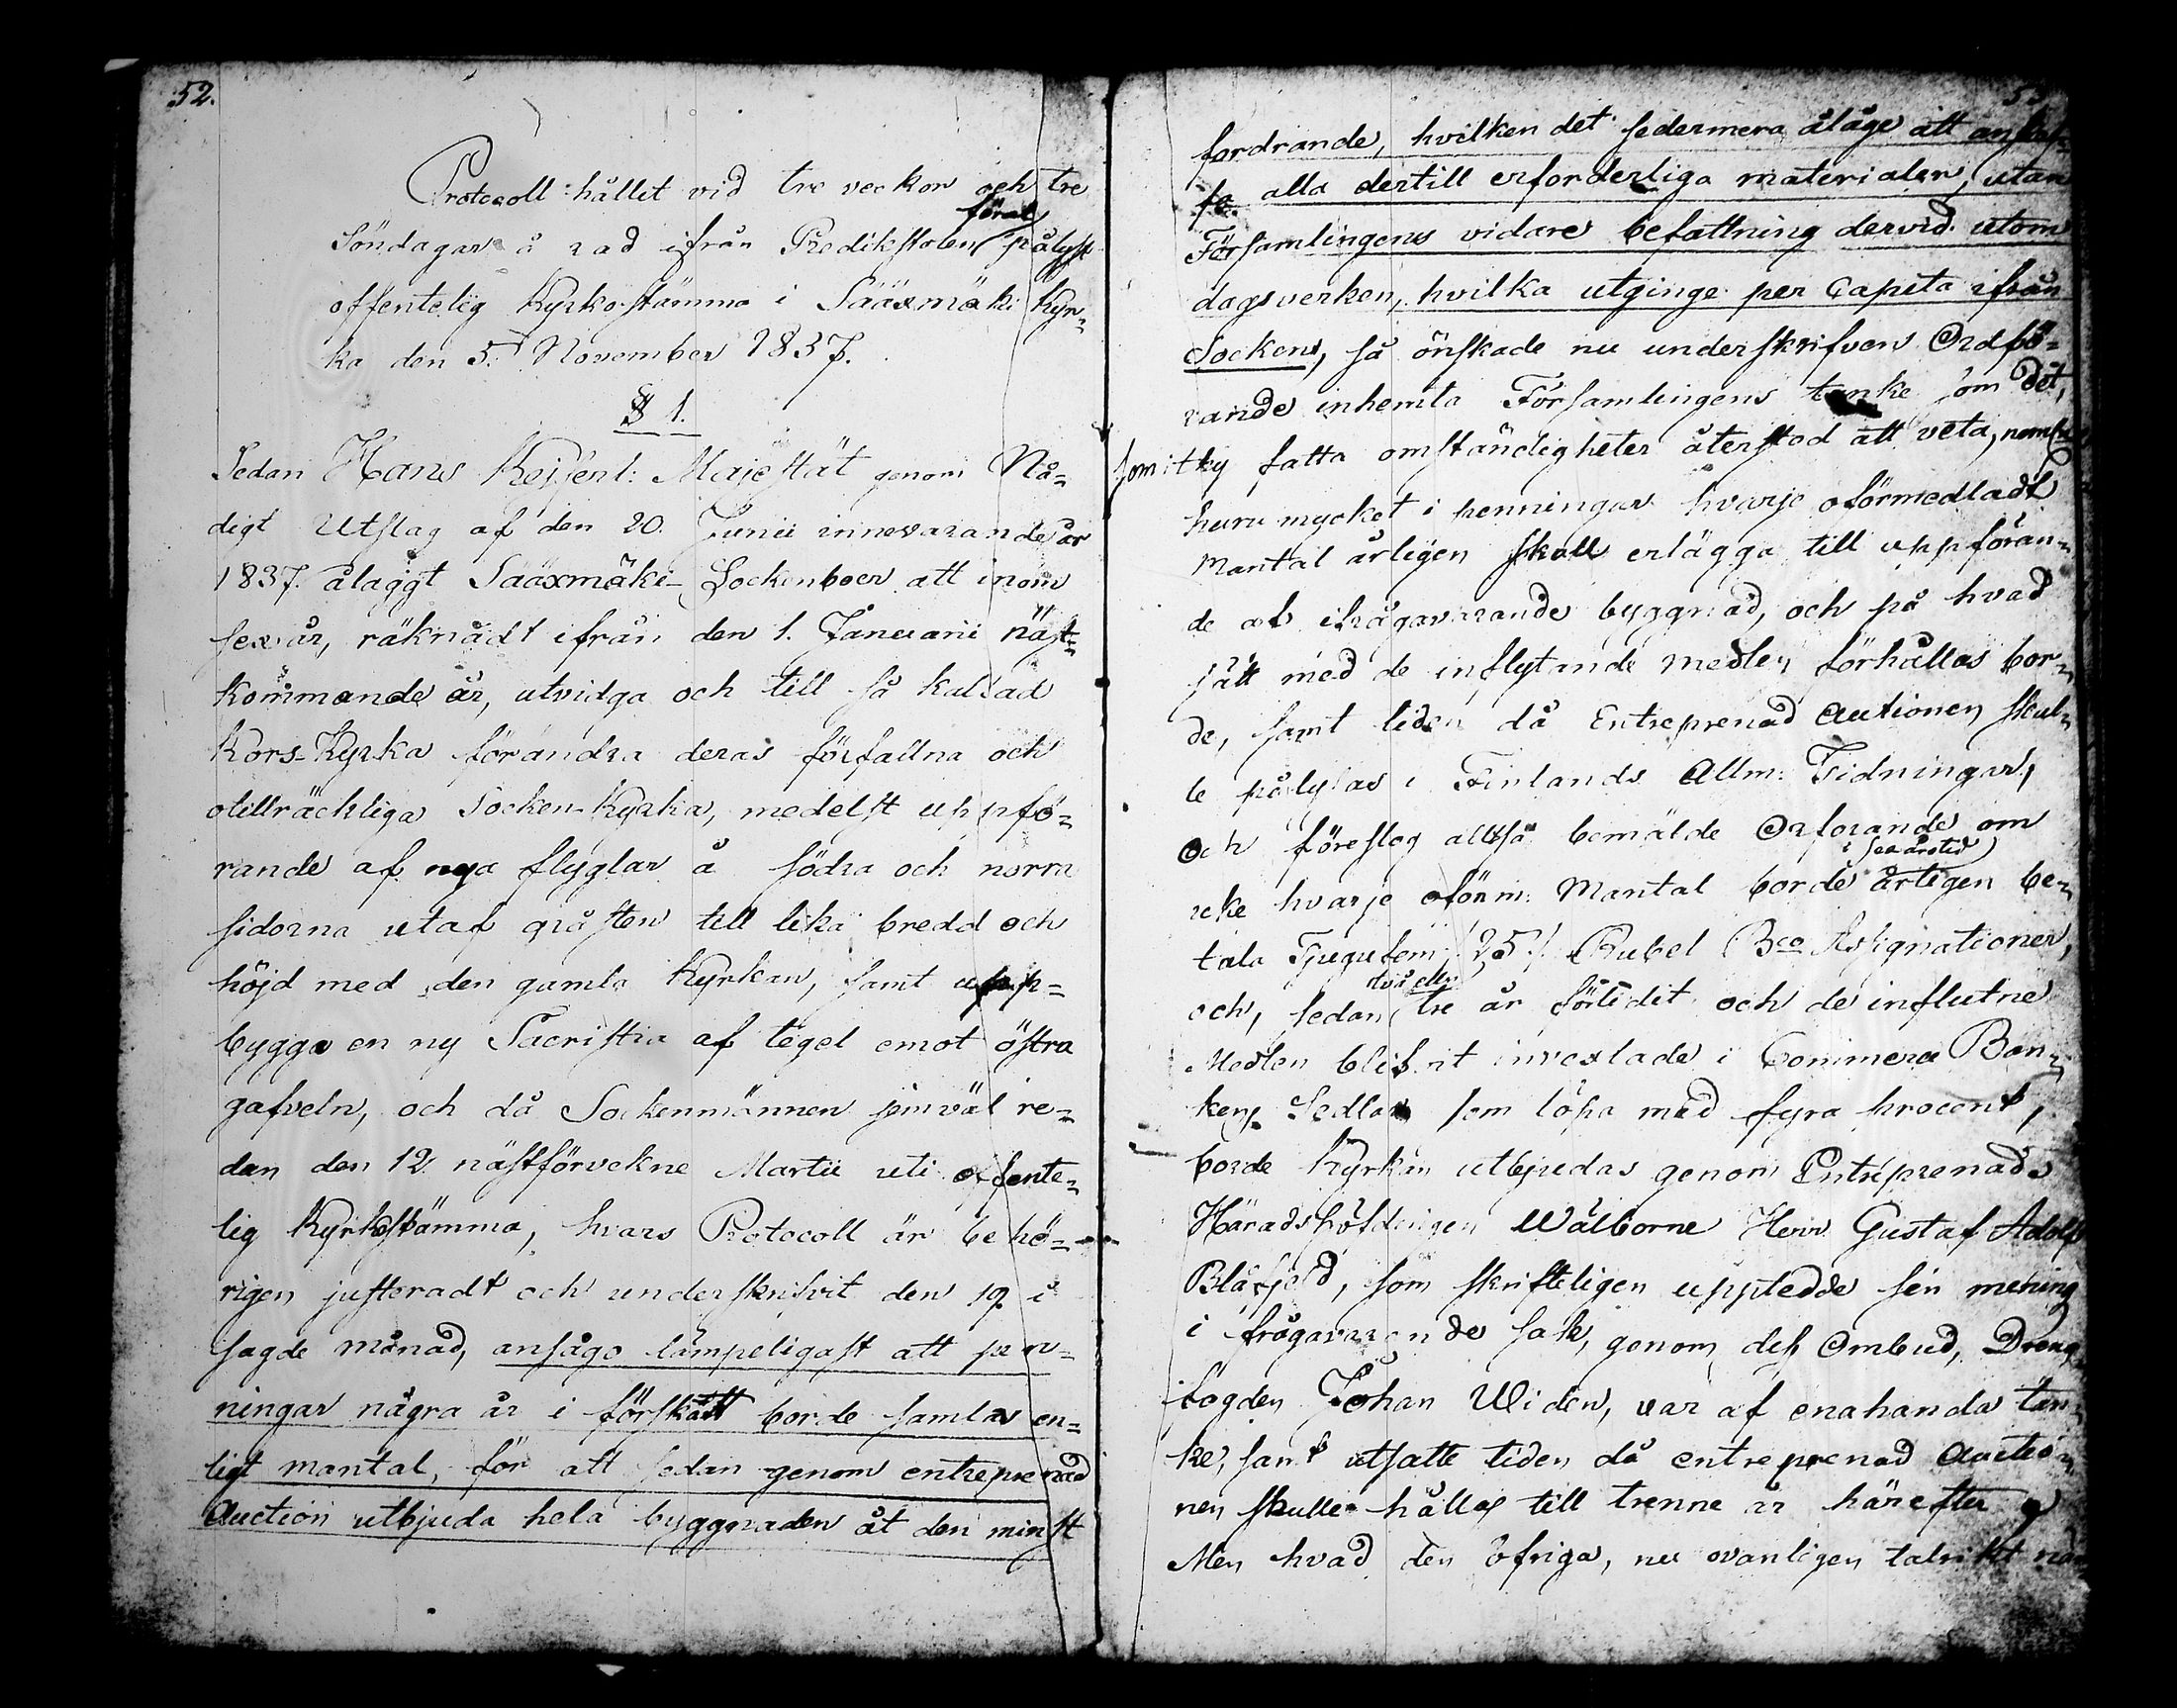 52.
Protocoll hållet vid tre veckor och tre
förut
Söndagar å rad ifrån Predikstolen pålyst
offentelig Kyrko-stämma i Sääxmäki Kyr=
ka den 5. November 1837.
§ 1.
Sedan Hans Kejserl: Majestät genom Nå=
digt Utslag af den 20. Junii innevarande år
1837. ålaggt Sääxmäki Sockenboer att inom
sex år, räknadt ifrån den 1. Januarii näst=
kommande år, utvidga och till så kallad
Kors-Kyrka förändra deras förfallna och
otillräckliga Socken-Kyrka, medelst uppfö=
rande af nya flyglar å södra och norra
sidorna utaf gråsten till lika bredd och
höjd med den gamla Kyrkan, samt upp=
bygga en ny Sacristia af tegel emot östra
gafveln, och då Sockenmännen jemväl re=
dan den 12 nästförvekne Martii uti offente=
lig Kyrkostämma, hvars Protocoll är behö=
rigen justeradt och underskrifvit den 19 i
sagde månad, ansågo lämpeligast att pen=
ningar några år i förskått borde samlas en=
ligt mantal, för att sedan genom entreprenad
Auction utbjuda hela byggnaden åt den minst
53
fordrande, hvilken det sedermera ålåge att anskaf=
fa alla dertill erforderliga materialer, utan
Församlingens vidare befattning dervid utom
dagsverken, hvilka utginge per Capita ifrån
Socken, så önskade nu underskrifven Ordfö=
rande inhemta Församlingens tanke om det,
som ity fatta omständigheter återstod att veta,
huru mycket i penningar hvarje oförmedladt
Mantal årligen skall erlägga till uppföran=
de af ifrågavarande byggnad, och på hvad
sätt med de inflytande medlen förhållas bor=
de, samt tiden då Entreprenad Auctionen skul=
le pålysas i Finlands Allm: Tidningar,
Och föreslog alltså bemälde Orförande om
i sex års tid
icke hvarje oförm: Mantal borde årligen be=
tala Tjugufem /25/ Rubel Bco Assignationer,
två eller
och, sedan tre år förlidit och de influtne
Medlen blifvit invexlade i Commerce Ban=
kens Sedlar som löpa med fyra procent,
borde Kyrkan utbjudas genom Entreprenads
Häradshöfdingen Wälborne Herr Gustaf Adolf
Blåfjeld, som skrifteligen uppledde sin mening
i frågavarande sak, genom dess Ombud, Dreng
fogden Johan Widen, var af enahanda tan=
ke, samt utsatte tiden då entreprenad Auctio=
nen skulle hållas till trenne år härefter
Men hvad den öfriga, nu ovanligen talrikt